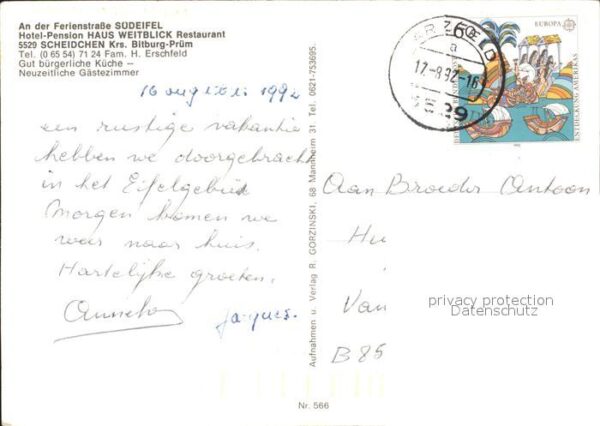 An der Ferienstraße SÜDEIFEL
Hotel-Pension HAUS WEITBLICK Restaurant
5529 SCHEIDCHEN Krs. Bitburg-Prüm
Tel. (0 65 54) 71 24 Fam. H. Erschfeld
Gut bürgerliche Küche –
Neuzeitliche Gästezimmer
16 augustus 1992
een rustige vakantie
hebben we doorgebracht
in het Eifelgebied
Morgen komen we
weer naar huis.
Hartelijke groeten.
Jacques.
Aufnahmen u. Verlag R. GORZINSKI, 68 Mannheim 31 Tel. 0621-753695.
17.-8.92.-16
EUROPA
ENTDECKUNG AMERIKAS
Aan Broeder Antoon
Hu
Van
B 85
privacy protection
Datenschutz
Nr. 566